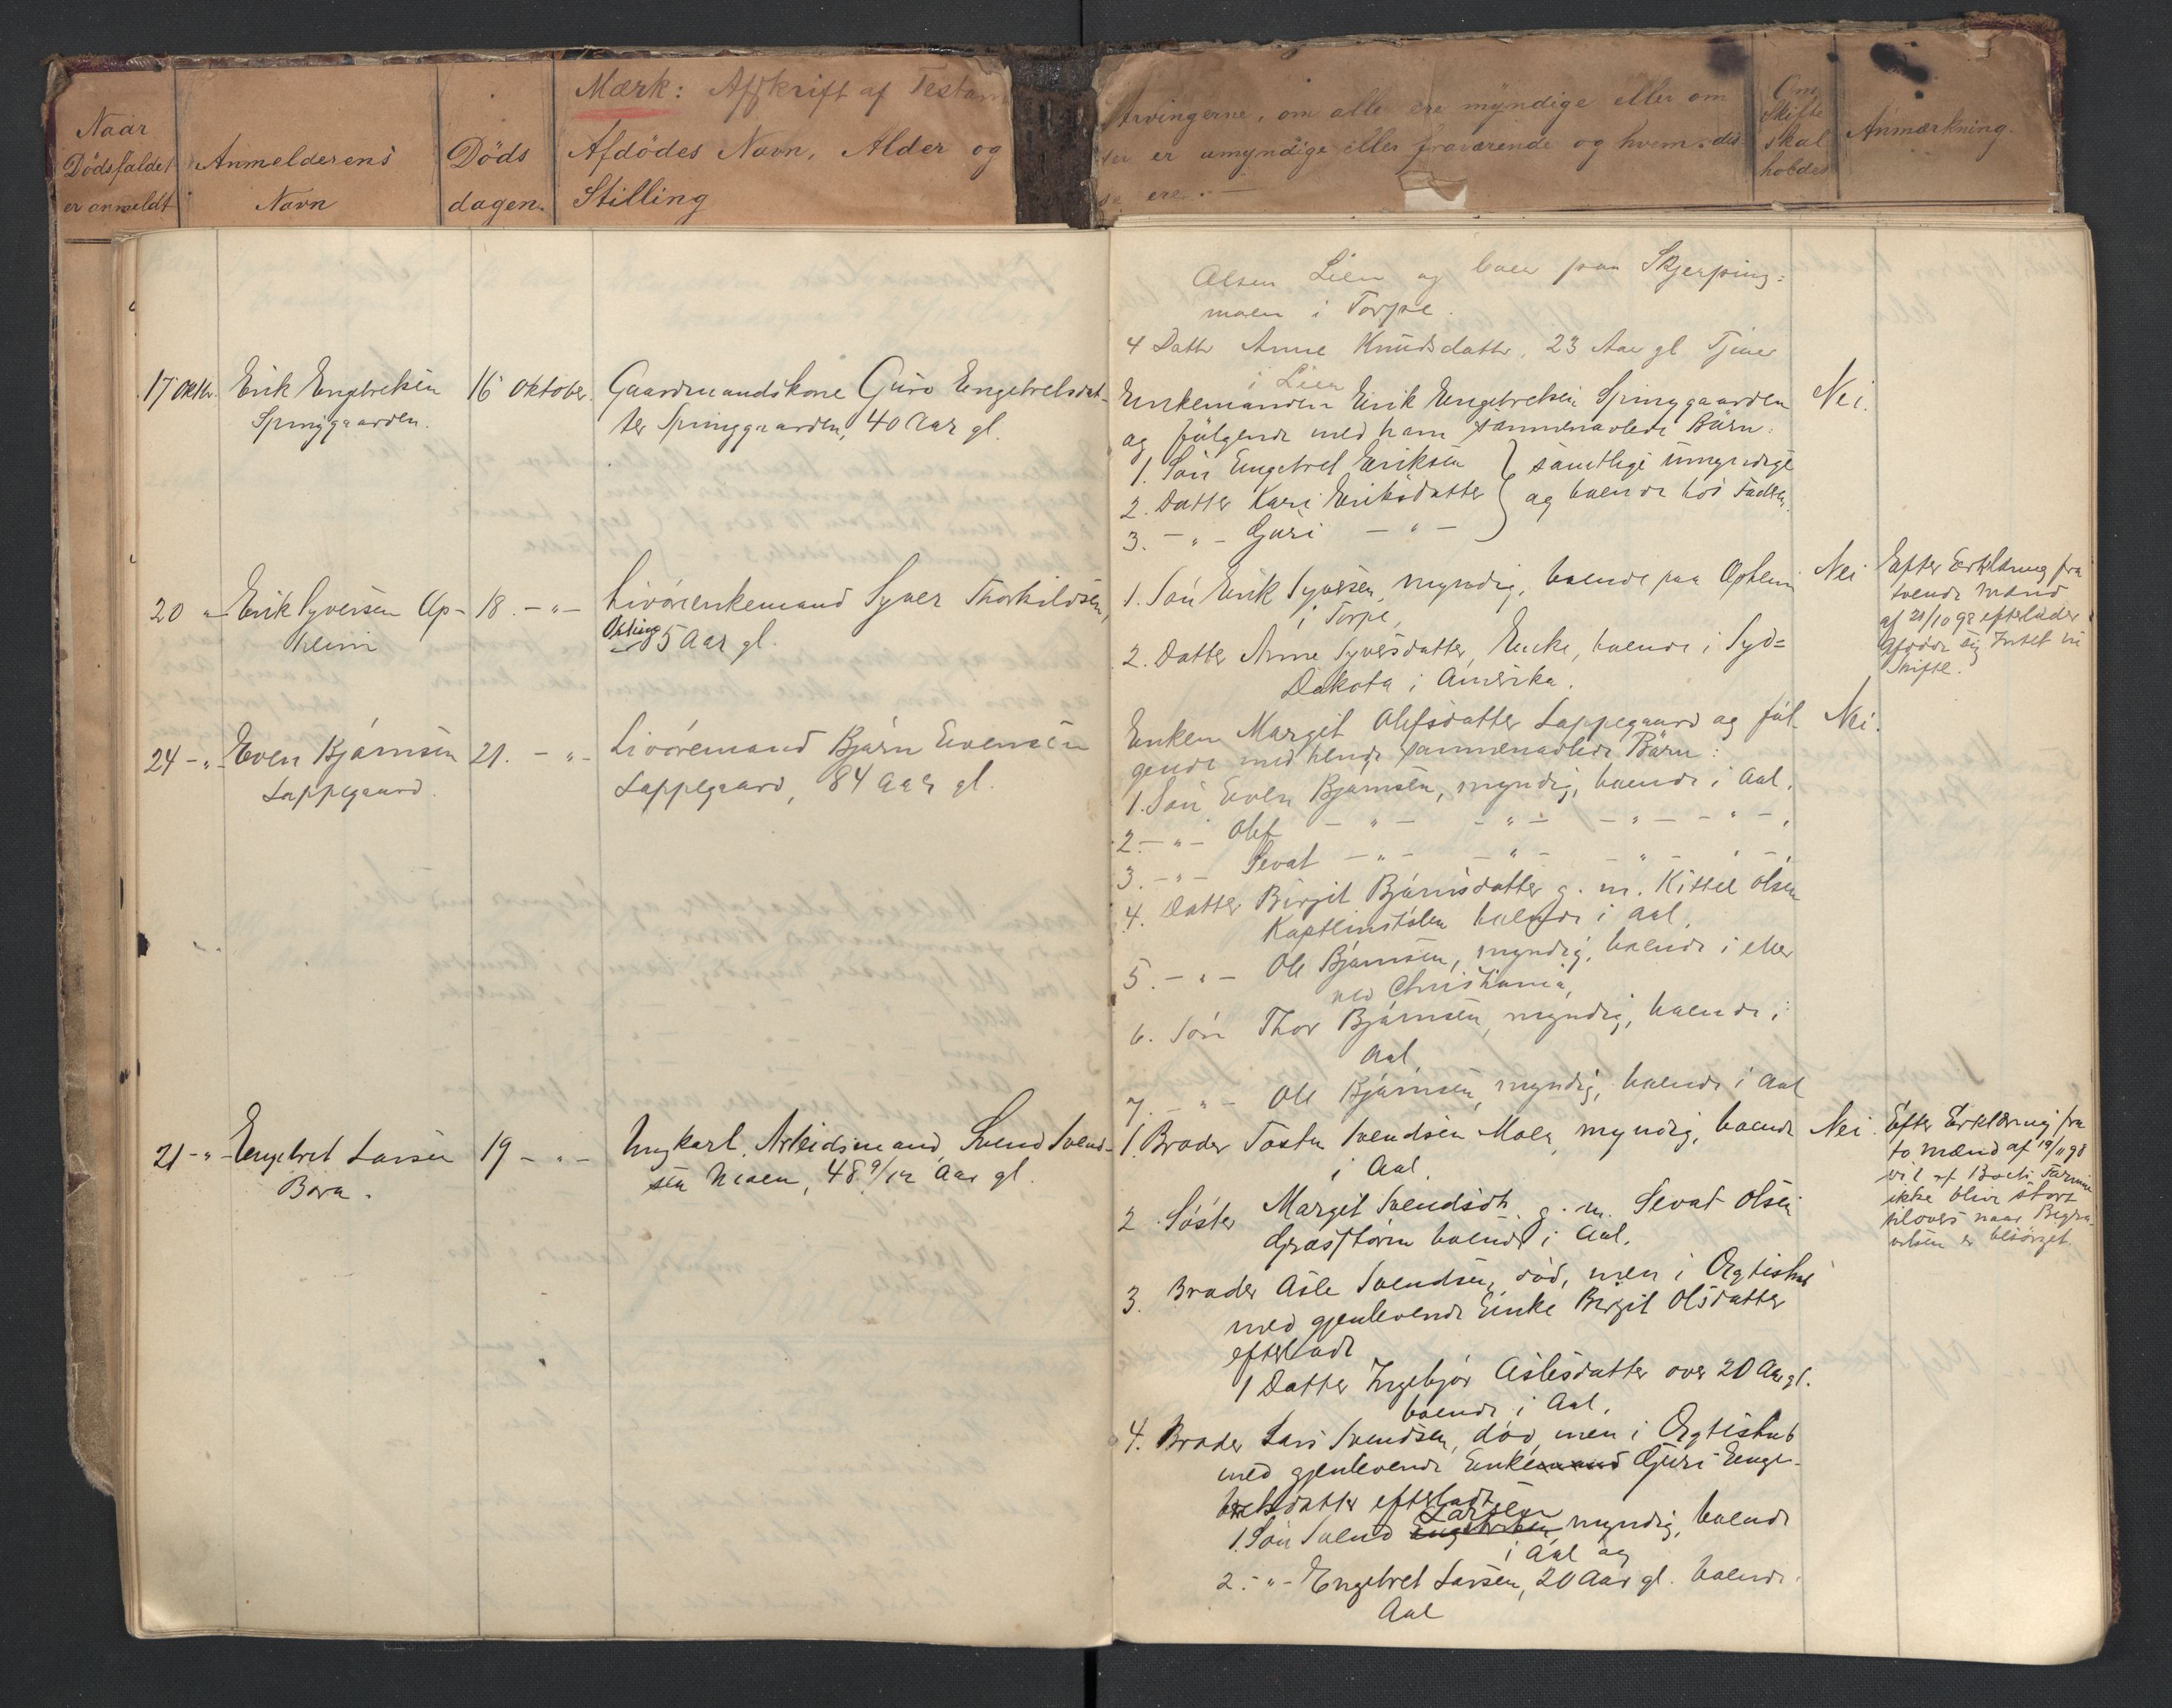 Mærk: Afskrift af Testam
Naar
Dödsfaldet
er anmeldt
Anmelderens
Navn
Döds
dagen.
Afdödes Navn, Alder og
Stilling
Arvingerne, om alle ere myndige eller om
er umyndige eller fraværende og hvem dis-
se ere.
Om
Skifte
skal
holdes
Anmærkning.
Olsen Lien og boer paa Skjerping=
moen i Torpe.
4 Datter Anne Knudsdatter, 23 Aar gl Tjener
i Lien
17 Oktbr.
Erik Engebretsen
Springgaarden.
16 Oktober.
Gaardmandskone Guro Engebretsdat-
ter Springgaarden, 40 Aar gl.
Enkemanden Erik Engebretsen Springgaarden
og følgende med ham sammenavlede Børn:
1. Søn Engebret Eriksen } samtlige umyndige
2. Datter Kari Eriksdatter } og boende hos Faderen.
3. - " - Guri - " -
Nei.
20 "
Erik Syversen Op-
heim
18. - " -
Livørenkemand Syver Thorkildsen
Opheim
85 Aar gl.
1. Søn Erik Syversen, myndig, boende paa Opheim
i Torpe,
2. Datter Anne Syversdatter, Enke, boende i Syd=
Dakota i Amerika.
Nei
Efter Erklæring fra
tvende Mænd
af 21/10 98 efterlader
Afdøde sig Intet til
Skifte.
24 - " -
Even Bjørnsen
Lappegaard.
21. - " -
Livøremand Bjørn Evensen
Lappegaard, 84 Aar gl.
Enken Margit Olefsdatter Lappegaard og føl
gende med hende sammenavlede Børn:
1. Søn Even Bjørnsen, myndig, boende i Aal.
2 - " - Olef - " - - " - - " - - " -,
3. - " - Sevat - " - - " - - " - " -,
4. Datter Birgit Bjørnsdatter g. m. Kittel Olsen
boende i Aal.
5. - " - Ole Bjørnsen, myndig, boende i eller
ved Christiania,
6. Søn Thor Bjørnsen, myndig, boende i
Aal
7. - " - Ole Bjørnsen, myndig, boende i Aal
Nei.
21 - "
Engebret Larsen
19 - " -
Ungkarl, Arbeidsmand, Svend Svend-
sen Moen, 48 9/12 Aar gl.
1. Broder Tosten Svendsen Moen, myndig, boende
i Aal.
2. Søster Margit Svendsdtr. g. m. Sevat Olsen
boende i Aal.
3. Broder Asle Svendsen, død, men i Ægteskab
med gjenlevende Enke Birgit Olsdatter
efterladt
1 Datter Ingebjør Aslesdatter over 20 Aar gl.
boende i Aal.
4. Broder Lars Svendsen, død, men i Ægteskab
med gjenlevende Enkemand Guri Enge-
bretsdatter efterladt
Larsen
1. Søn Svend Engebretsen myndig, boende
i Aal og
2. - " - Engebret Larsen, 20 Aar gl. boende
Aal
Nei
Efter Erklæring fra
to Mænd af 19/11 98
vil af Boets Formue
ikke blive stort
tilovers naar Begra-
velsen er besørget.